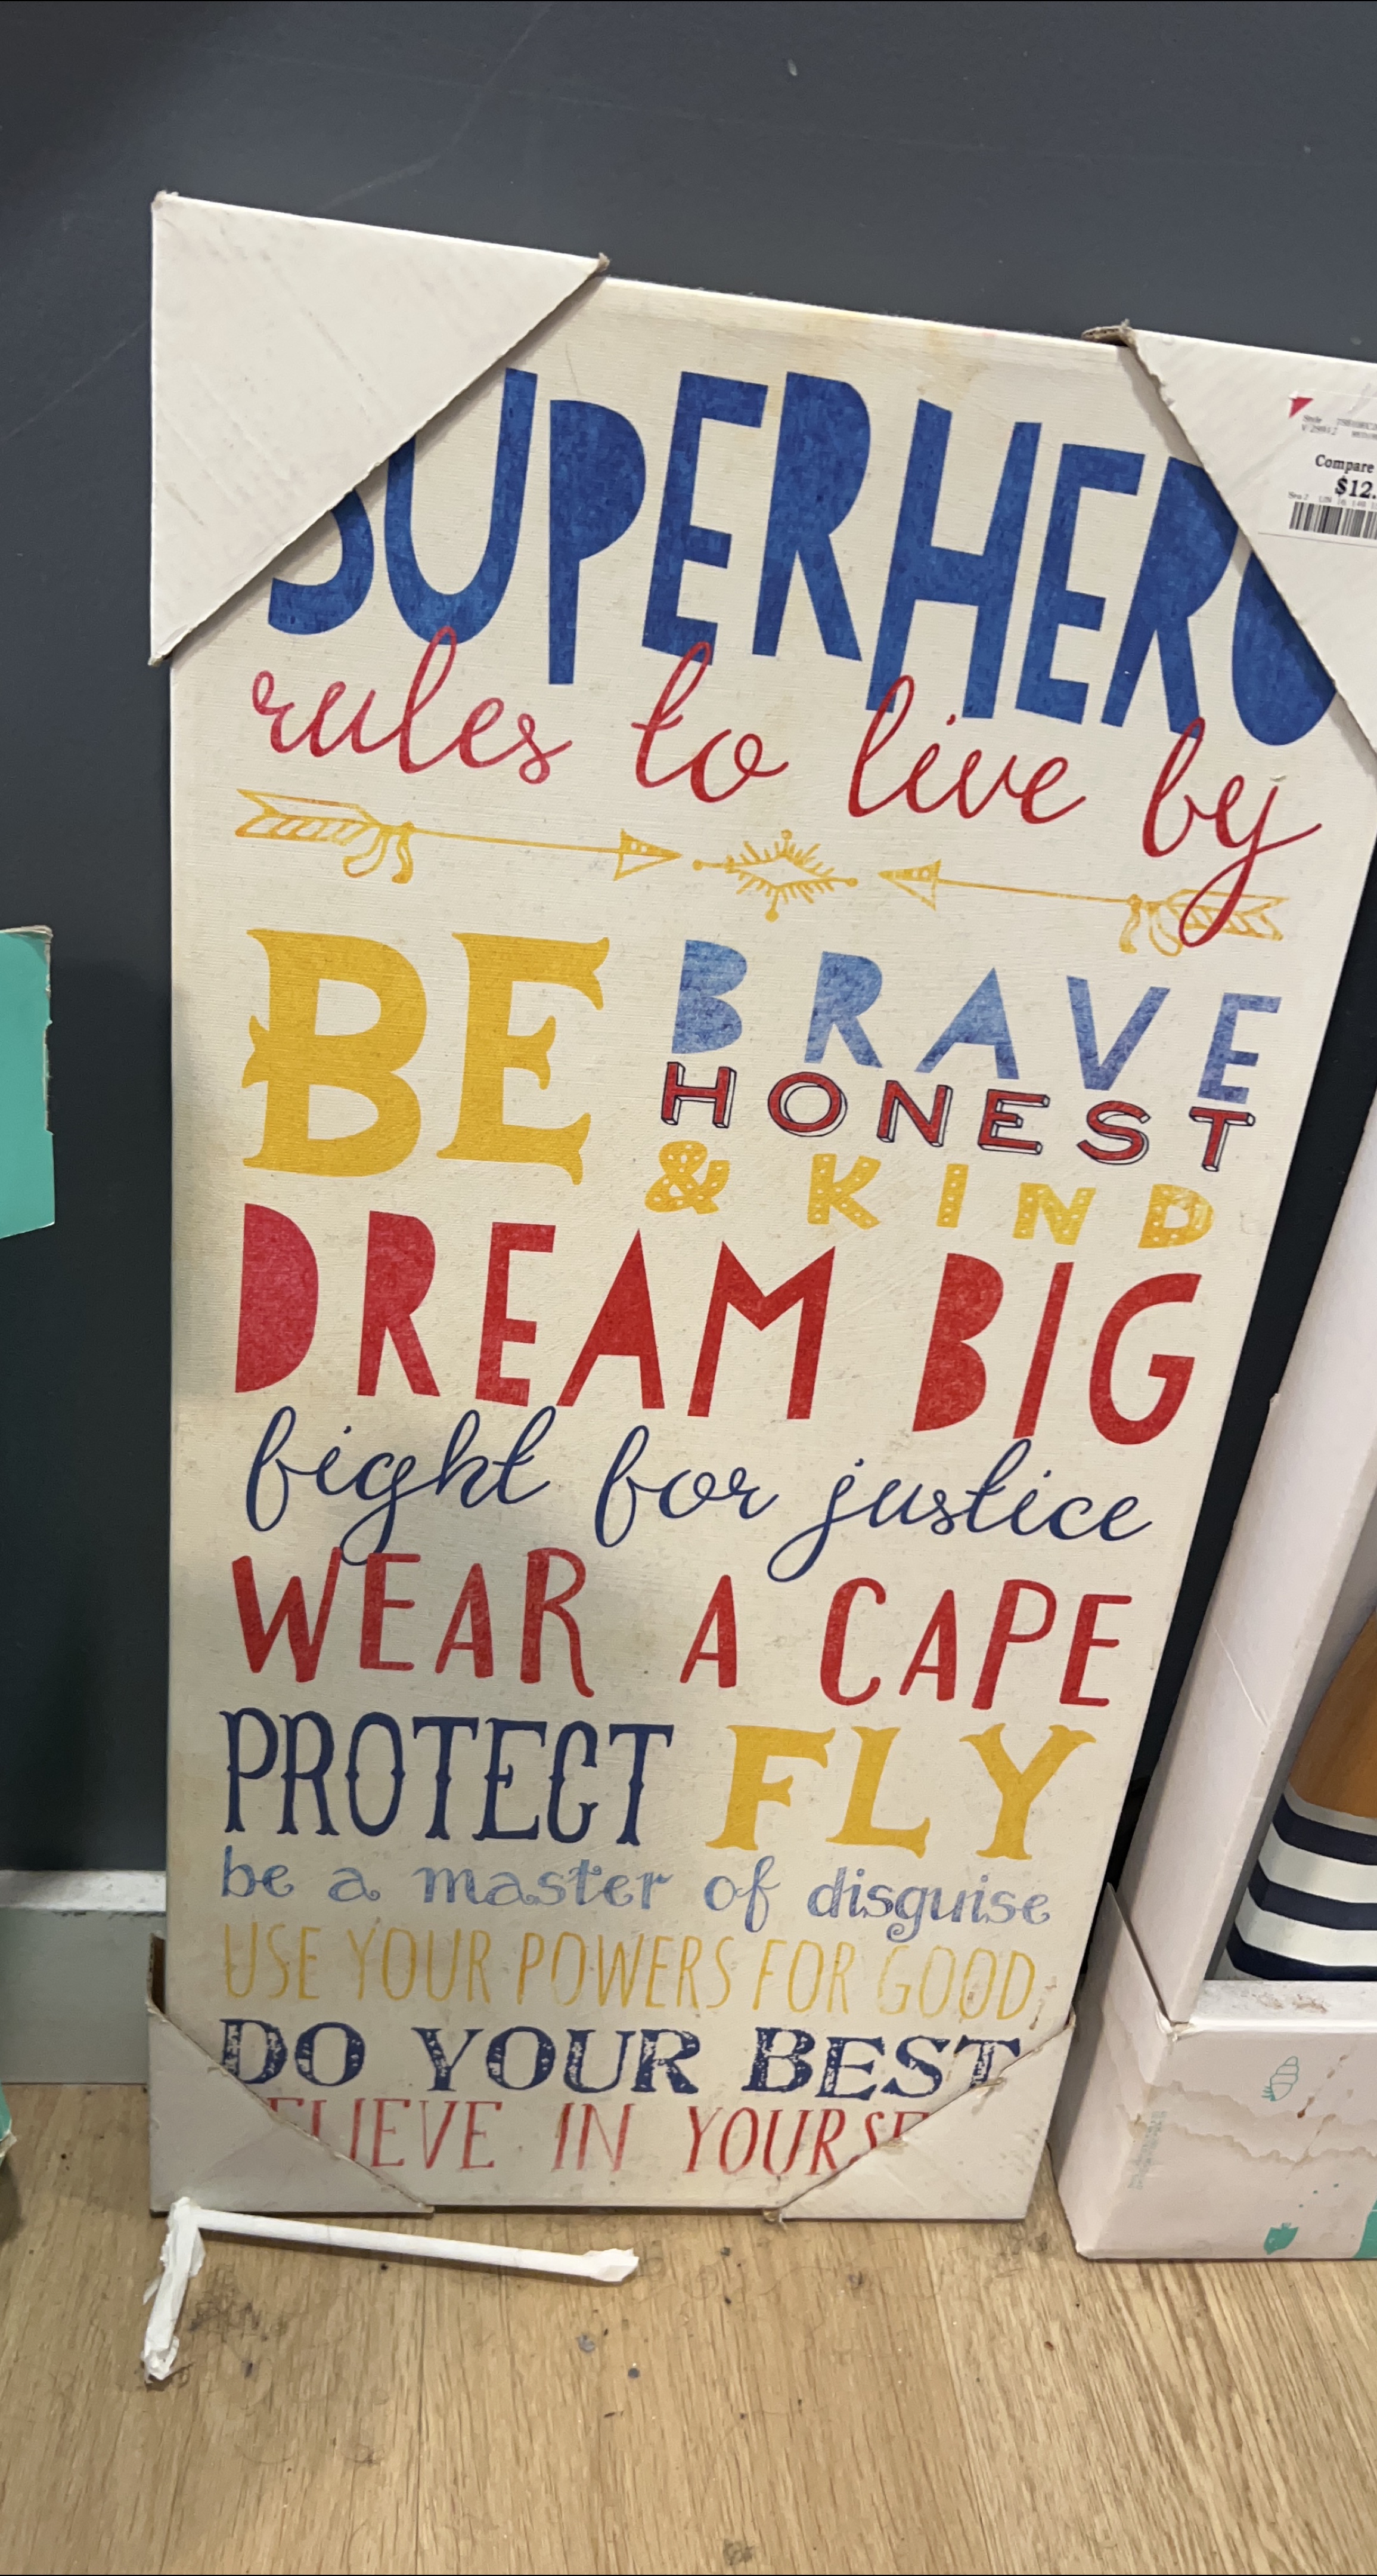 SUPERHERO
rules to live by
BE BRAVE
HONEST
& KIND
DREAM BIG
fight for justice
WEAR A CAPE
PROTECT FLY
be a master of disguise
USE YOUR POWERS FOR GOOD
DO YOUR BEST
ELIEVE IN YOURSE
Compare
$12.